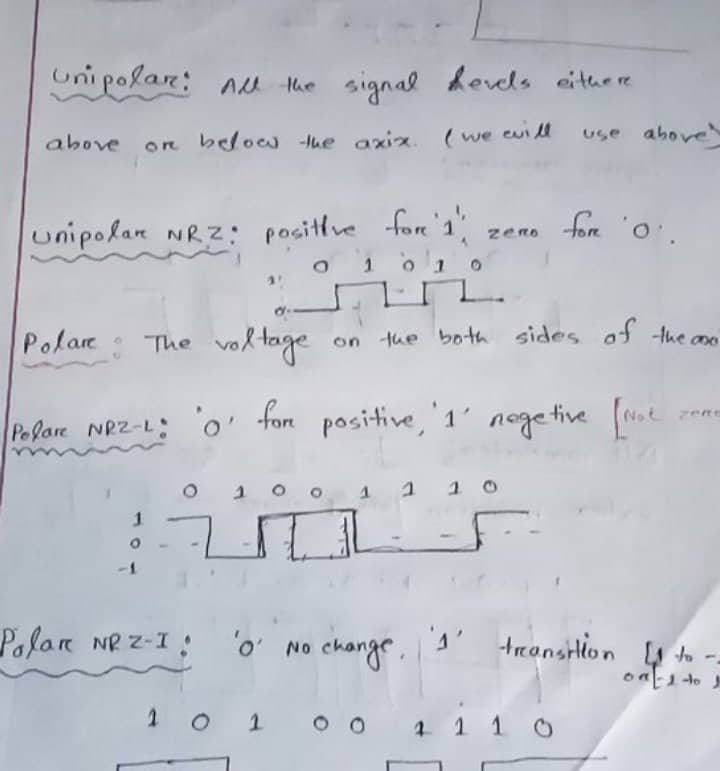 Unipolar: All the signal levels either
above or below the axix. (we will use above)
Unipolar NRZ: positive for '1', zero for '0'.
0 1 0 1 0
1
0
Polar : The voltage on the both sides of the
Polar NRZ-L: '0' for positive, '1' negetive [Not zero
0 1 0 0 1 1 1 0
1
0
-1
Polar NRZ-I: '0' No change, '1' transition [1 to -
or [-1 to 1
1 0 1 0 0 1 1 1 0